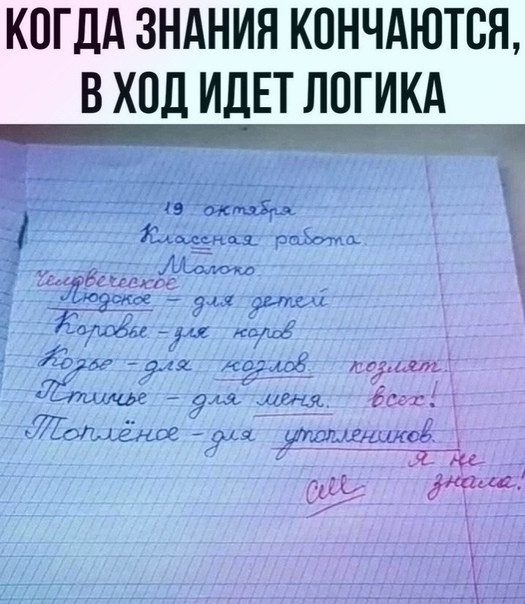 КОГДА ЗНАНИЯ КОНЧАЮТСЯ,
В ХОД ИДЕТ ЛОГИКА
19 октября
Классная работа.
Молоко
Человеческое
Людское – для детей
Коровье – для коров
Козье – для козлов. козлят.
Птичье – для меня. всех!
Топлёное – для утоплеников.
я не
см знала!